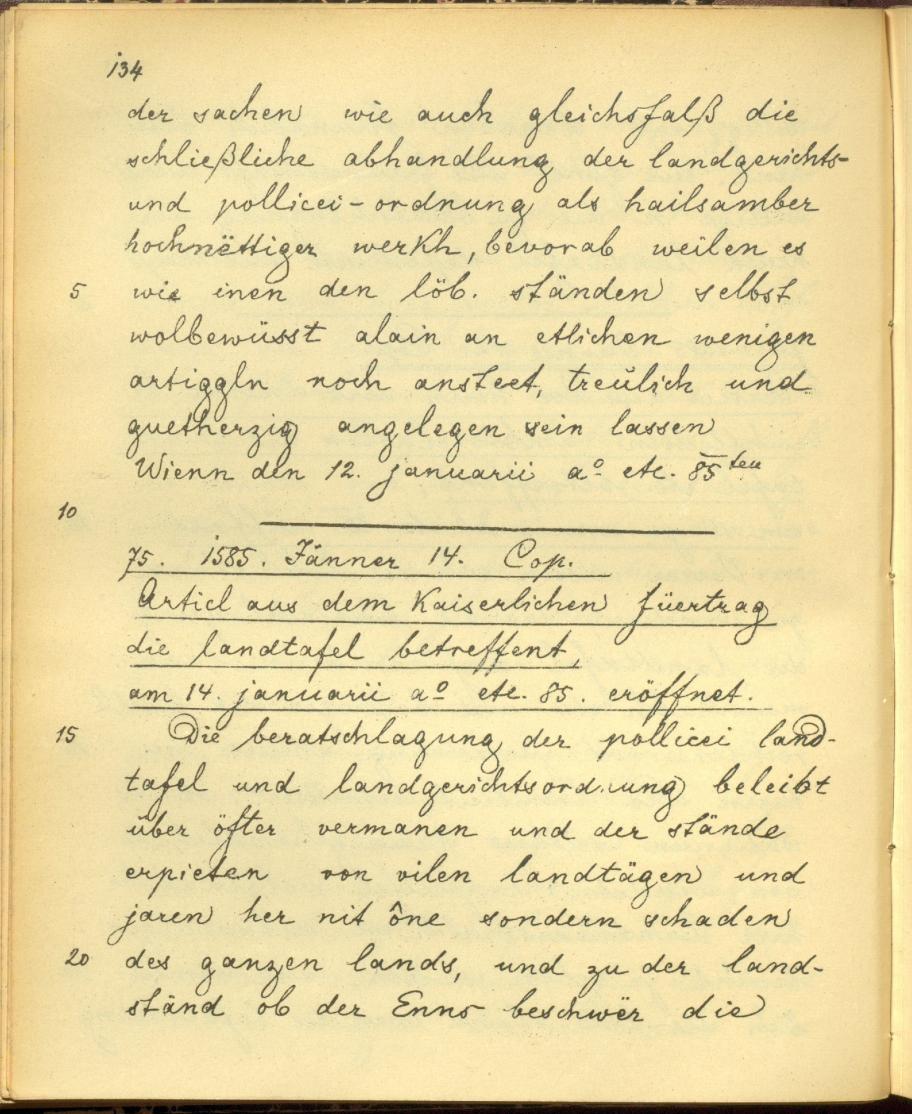 134
der sachen wie auch gleichsfalß die
schließliche abhandlung der landgerichts-
und pollicei-ordnung als hailsamber
hochnëttiger werkh, bevorab weilen es
5 wie inen den löb. ständen selbst
wolbewüsst alain an etlichen wenigen
artiggln noch ansteet, treulich und
guetherzig angelegen sein lassen
Wienn den 12. januarii aº etc. 85ten
10
75. 1585. Jänner 14. Cop.
Articl aus dem Kaiserlichen füertrag
die landtafel betreffent,
am 14. januarii aº etc. 85. eröffnet.
15 Die beratschlagung der pollicei land-
tafel und landgerichtsordnung beleibt
über öfter vermanen und der stände
erpieten von vilen landtägen und
jaren her nit öne sondern schaden
20 des ganzen lands, und zu der land-
ständ ob der Enns beschwër die